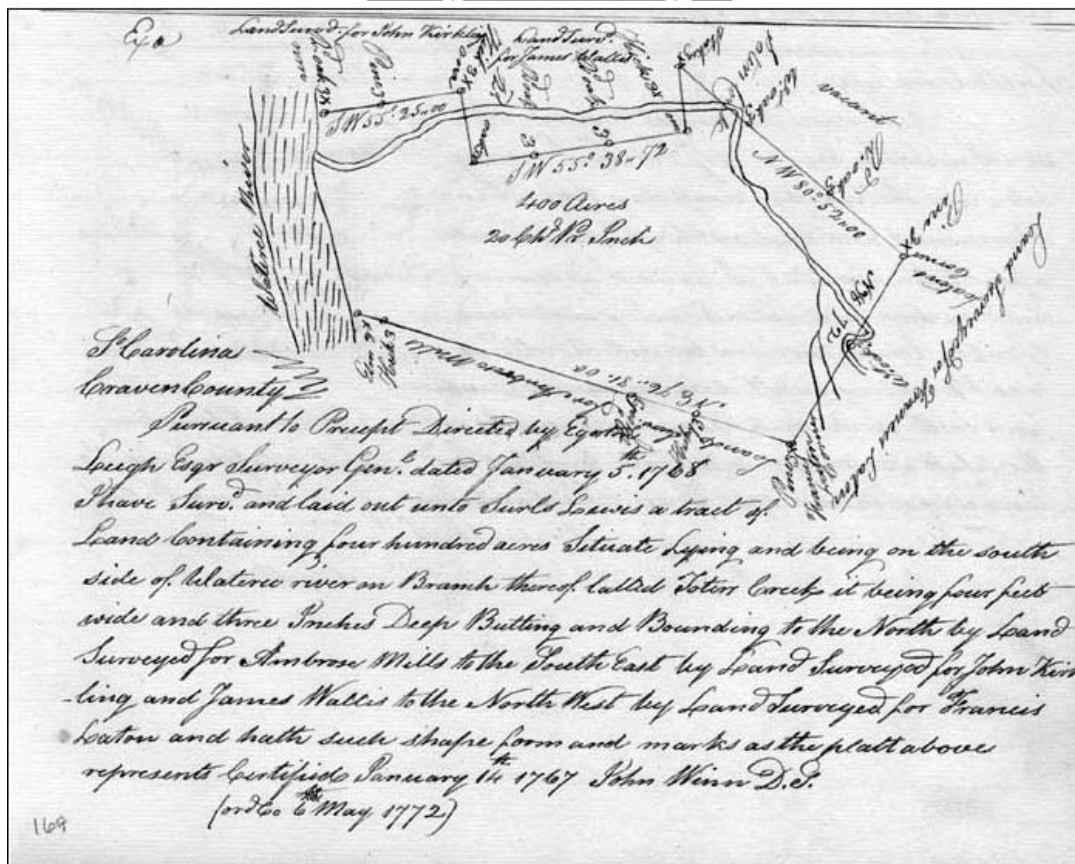 Exd
Land Survd. for John Kirkling
Land Survd.
for James Wallis
Pine 3
Wateree River
S W 55°. 25.00
S W 55°. 38-72
400 Acres
20 Chs. Pr. Inch
vacant
N W 80° 52.00
Pine 3X
Corner
Land Survayd for Francis Laton
N E 76. 81.00
Land Survayed for Ambros Mills
Elm 3X
So. Carolina
Craven County
Pursuant to Precept Directed by Egerton
Leigh Esqr Surveyor Genl. dated January 5. 1768
I have Survd. and laid out unto Surls Lewis a tract of
Land Containing four hundred acres Situate Lying and being on the south
side of Wateree river on Branch thereof Called Toters Creek it being four feet
wide and three Inches Deep Butting and Bounding to the North by Land
Surveyed for Ambrose Mills to the South East by Land Surveyed for John Kirk
-ling and James Wallis to the North West by Land Surveyed for Francis
Laton and hath such shape form and marks as the platt above
represents Certified January 14th 1767 John Winn D.S.
(ord Co 6th May 1772)
169